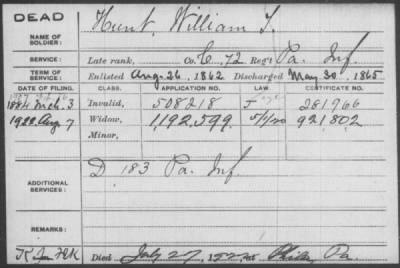 DEAD
Hunt, William T.
NAME OF SOLDIER:
SERVICE: Late rank, Co. C, 72 Reg't Pa. Inf.
TERM OF SERVICE: Enlisted Aug. 26, 1862 Discharged May 30, 1865
DATE OF FILING. CLASS. APPLICATION NO. LAW. CERTIFICATE NO.
1884 Mch. 3 Invalid, 508218 281966
1922, Aug 7 Widow, 1,192,599. 5/1/20 921,802
Minor,
D 183 Pa. Inf.
ADDITIONAL SERVICES:
REMARKS:
Died July 27, 1922, at Phila, Pa.